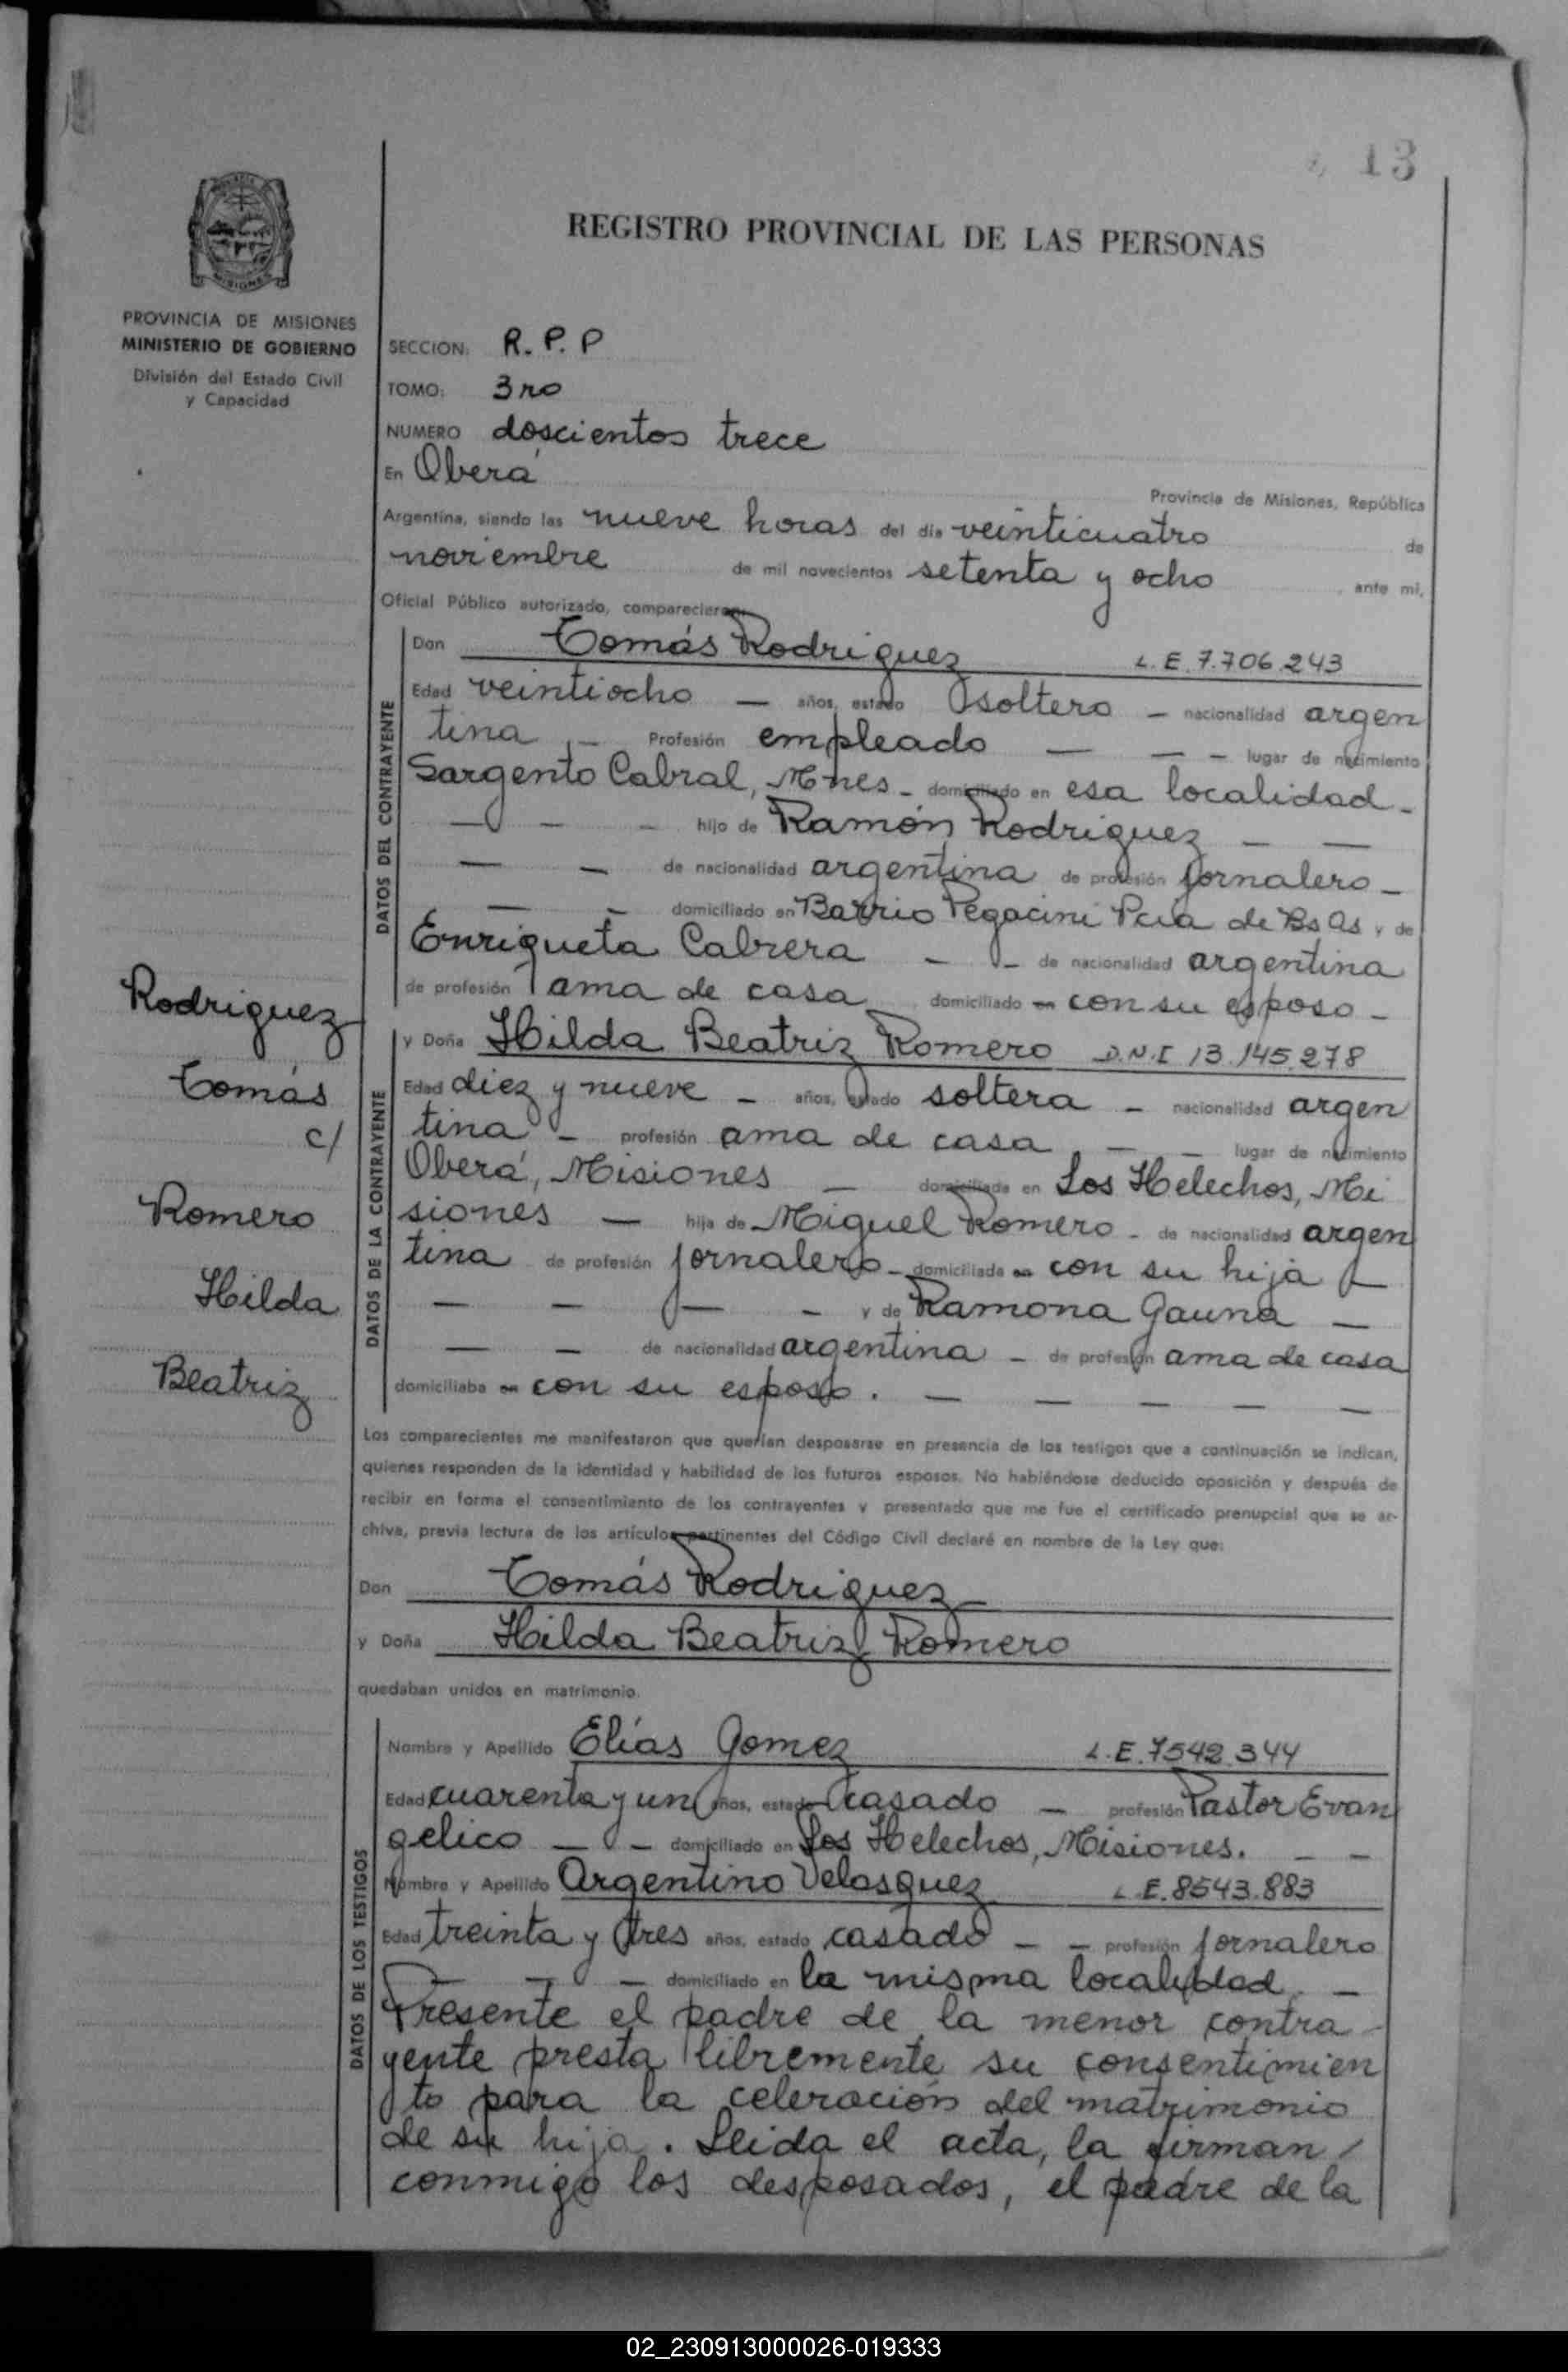 13
REGISTRO PROVINCIAL DE LAS PERSONAS
PROVINCIA DE MISIONES
MINISTERIO DE GOBIERNO
División del Estado Civil
y Capacidad
SECCION: R. P. P
TOMO: 3ro
NUMERO doscientos trece
En Oberá
Provincia de Misiones, República
Argentina, siendo las nueve horas del día veinticuatro de
noviembre de mil novecientos setenta y ocho, ante mi,
Oficial Público autorizado, comparecieron:
DATOS DEL CONTRAYENTE
Don Tomás Rodriguez L. E. 7.706.243
Edad veintiocho — años, estado soltero — nacionalidad argen
tina — Profesión empleado — — — lugar de nacimiento
Sargento Cabral, Mnes - domiciliado en esa localidad -
— — — hijo de Ramón Rodriguez — —
— — de nacionalidad argentina de profesión jornalero -
— — domiciliado en Barrio Pegacini Pcia de Bs As y de
Enriqueta Cabrera — — de nacionalidad argentina
de profesión ama de casa domiciliado en con su esposo -
DATOS DE LA CONTRAYENTE
y Doña Hilda Beatriz Romero D.N.I 13.145.278
Edad diez y nueve - años, estado soltera - nacionalidad argen
tina - profesión ama de casa — — lugar de nacimiento
Oberá, Misiones — domiciliada en Los Helechos, Mi
siones — hija de Miguel Romero - de nacionalidad argen
tina de profesión jornalero - domiciliada en con su hija —
— — — - y de Ramona Gauna —
— — de nacionalidad argentina - de profesión ama de casa
domiciliaba en con su esposo. — — — — —
Rodriguez
Tomás
c/
Romero
Hilda
Beatriz
Los comparecientes me manifestaron que querían desposarse en presencia de los testigos que a continuación se indican,
quienes responden de la identidad y habilidad de los futuros esposos. No habiéndose deducido oposición y después de
recibir en forma el consentimiento de los contrayentes y presentado que me fue el certificado prenupcial que se ar-
chiva, previa lectura de los artículos pertinentes del Código Civil declaré en nombre de la Ley que:
Don Tomás Rodriguez
y Doña Hilda Beatriz Romero
quedaban unidos en matrimonio.
DATOS DE LOS TESTIGOS
Nombre y Apellido Elías Gomez L.E. 7542.344
Edad cuarenta y un años, estado casado — profesión Pastor Evan
gelico — — domiciliado en Los Helechos, Misiones. — —
Nombre y Apellido Argentino Velasquez L.E. 8543.883
Edad treinta y tres años, estado casado - - profesión jornalero
— — — domiciliado en la misma localidad. —
Presente el padre de la menor contra-
yente presta libremente su consentimien
to para la celeración del matrimonio
de su hija. Leida el acta, la firman /
conmigo los desposados, el padre de la
02_230913000026-019333